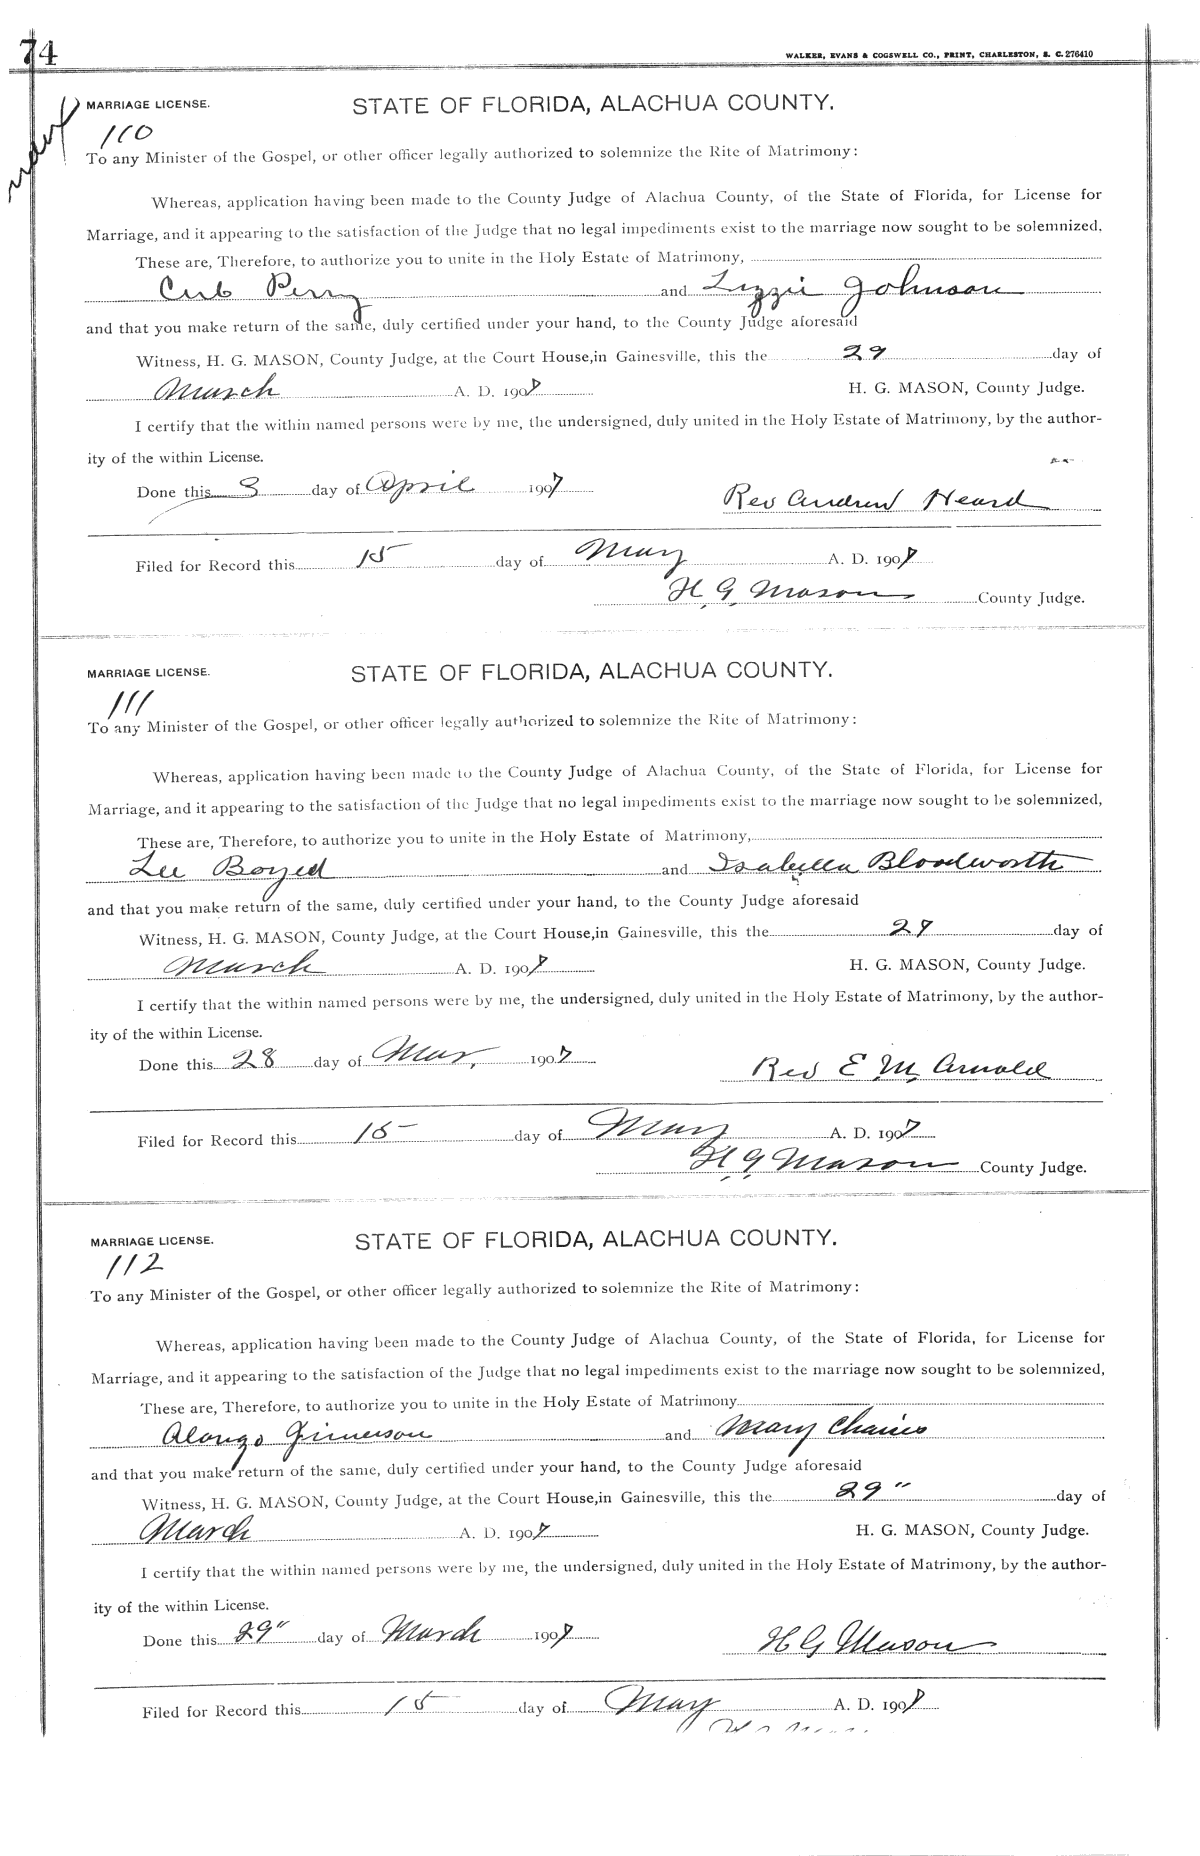 74
WALKER, EVANS & COGSWELL CO., PRINT, CHARLESTON, S. C. 276410
MARRIAGE LICENSE. STATE OF FLORIDA, ALACHUA COUNTY.
110
To any Minister of the Gospel, or other officer legally authorized to solemnize the Rite of Matrimony:
Whereas, application having been made to the County Judge of Alachua County, of the State of Florida, for License for
Marriage, and it appearing to the satisfaction of the Judge that no legal impediments exist to the marriage now sought to be solemnized,
These are, Therefore, to authorize you to unite in the Holy Estate of Matrimony,
Cub Perry and Lizzie Johnson
and that you make return of the same, duly certified under your hand, to the County Judge aforesaid
Witness, H. G. MASON, County Judge, at the Court House,in Gainesville, this the 29 day of
March A. D. 1907 H. G. MASON, County Judge.
I certify that the within named persons were by me, the undersigned, duly united in the Holy Estate of Matrimony, by the author-
ity of the within License.
Done this 3 day of April 1907 Rev Andrew Heard
Filed for Record this 15 day of May A. D. 1907
H. G. Mason County Judge.
MARRIAGE LICENSE. STATE OF FLORIDA, ALACHUA COUNTY.
111
To any Minister of the Gospel, or other officer legally authorized to solemnize the Rite of Matrimony:
Whereas, application having been made to the County Judge of Alachua County, of the State of Florida, for License for
Marriage, and it appearing to the satisfaction of the Judge that no legal impediments exist to the marriage now sought to be solemnized,
These are, Therefore, to authorize you to unite in the Holy Estate of Matrimony,
Lee Boyed and Isabella Bloodworth
and that you make return of the same, duly certified under your hand, to the County Judge aforesaid
Witness, H. G. MASON, County Judge, at the Court House,in Gainesville, this the 27 day of
March A. D. 1907 H. G. MASON, County Judge.
I certify that the within named persons were by me, the undersigned, duly united in the Holy Estate of Matrimony, by the author-
ity of the within License.
Done this 28 day of Mar, 1907 Rev E. M. Arnold
Filed for Record this 15 day of May A. D. 1907
H. G. Mason County Judge.
MARRIAGE LICENSE. STATE OF FLORIDA, ALACHUA COUNTY.
112
To any Minister of the Gospel, or other officer legally authorized to solemnize the Rite of Matrimony:
Whereas, application having been made to the County Judge of Alachua County, of the State of Florida, for License for
Marriage, and it appearing to the satisfaction of the Judge that no legal impediments exist to the marriage now sought to be solemnized,
These are, Therefore, to authorize you to unite in the Holy Estate of Matrimony
Alonzo Jimerson and Mary Chaires
and that you make return of the same, duly certified under your hand, to the County Judge aforesaid
Witness, H. G. MASON, County Judge, at the Court House,in Gainesville, this the 29" day of
March A. D. 1907 H. G. MASON, County Judge.
I certify that the within named persons were by me, the undersigned, duly united in the Holy Estate of Matrimony, by the author-
ity of the within License.
Done this 29" day of March 1907 H G Mason
Filed for Record this 15 day of May A. D. 1907